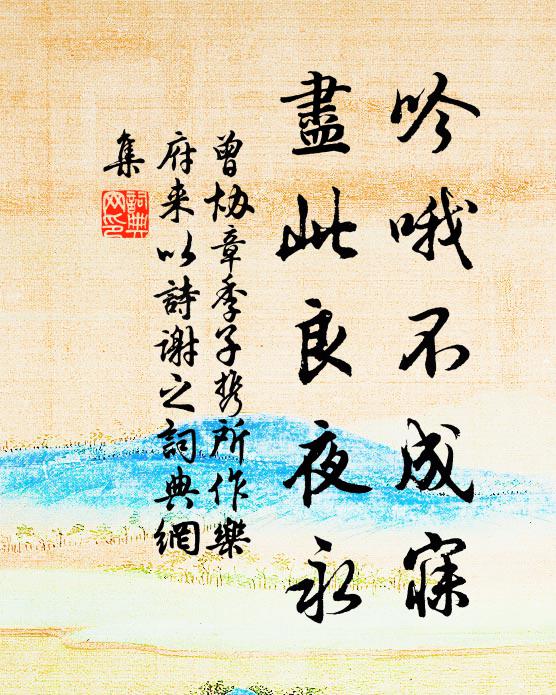 吟哦不成寐
盡此良夜永
曾协章季子携所作樂
府来以詩謝之詞典網
集
詞典网印